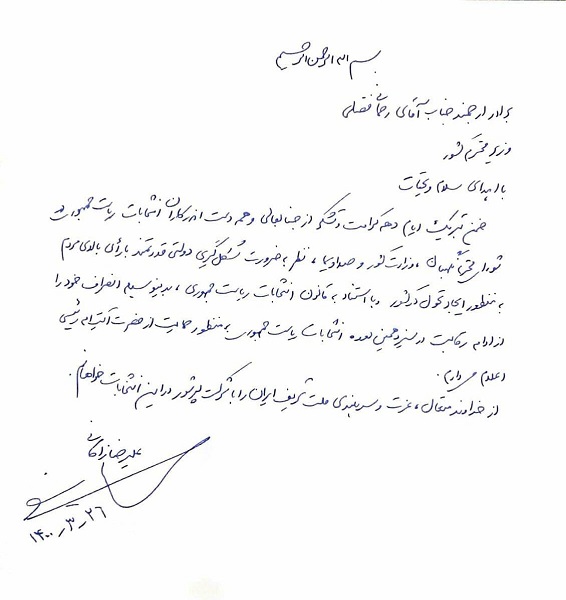 بسم الله الرحمن الرحیم
برادر ارجمند جناب آقای رحمانی فضلی
وزیر محترم کشور
با اهدای سلام و تحیات
ضمن تبریک ایام دهه کرامت و تشکر از جنابعالی و همه دست اندرکاران انتخابات ریاست جمهوری در
شورای محترم نگهبان، وزارت کشور و صدا و سیما، نظر به ضرورت شکل گیری دولتی قدرتمند با رأی بالای مردم
به منظور ایجاد تحول در کشور و با استناد به قانون انتخابات ریاست جمهوری، بدینوسیله انصراف خود را
از ادامه رقابت در سیزدهمین دوره انتخابات ریاست جمهوری به منظور حمایت از حضرت آیت اله رئیسی
اعلام می دارم.
از خداوند متعال، عزت و سربلندی ملت شریف ایران را با شرکت پرشور در این انتخابات خواهانم.
علیرضا زاکانی
۱۴۰۰٫۳٫۲۶